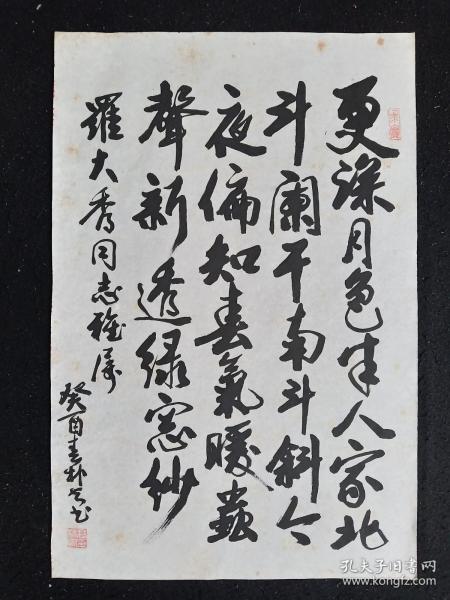 更深月色半人家北
斗闌干南斗斜今
夜偏知春氣暖蟲
聲新透绿窓紗
羅大秀同志雅屬
癸酉春
孔夫子旧书网
www.kongfz.com